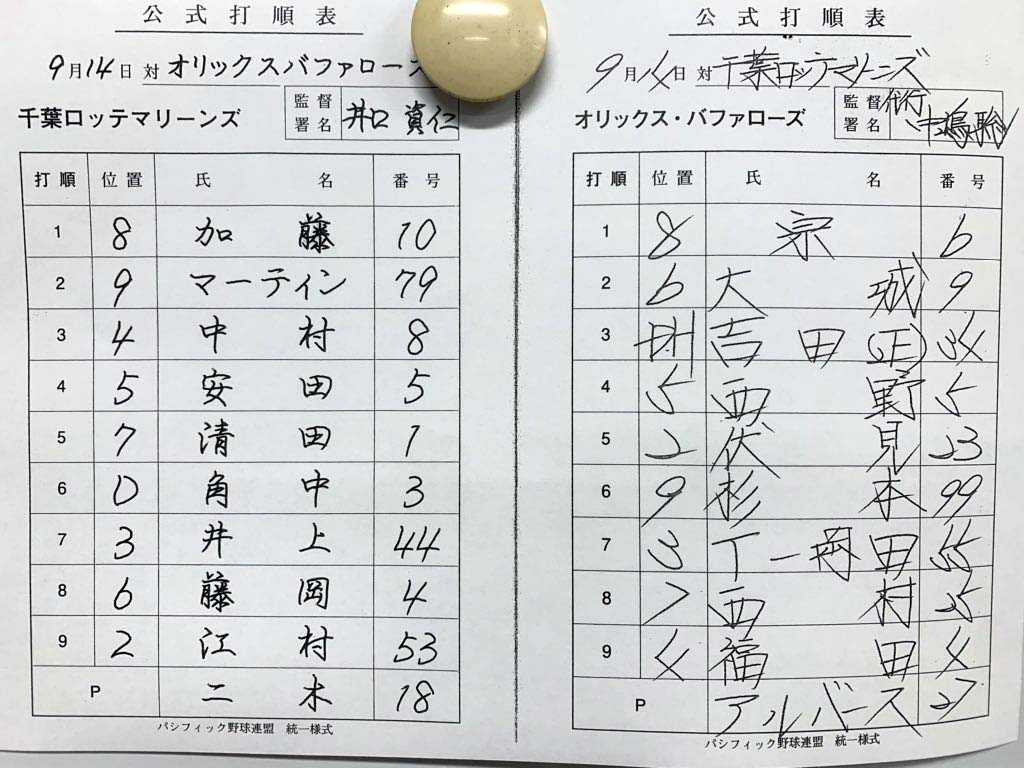 公式打順表
9月14日 対 オリックスバファローズ
千葉ロッテマリーンズ 監督署名 井口 資仁
打順 位置 氏 名 番号
1 8 加 藤 10
2 9 マーティン 79
3 4 中 村 8
4 5 安 田 5
5 7 清 田 1
6 D 角 中 3
7 3 井 上 44
8 6 藤 岡 4
9 2 江 村 53
P 二 木 18
パシフィック野球連盟 統一様式
公式打順表
9月14日 対 千葉ロッテマリーンズ
オリックス・バファローズ 監督署名 代行 中嶋聡
打順 位置 氏 名 番号
1 8 宗 6
2 6 大 城 9
3 DH 吉 田 (正) 34
4 5 西 野 5
5 2 伏 見 23
6 9 杉 本 99
7 3 T-岡田 55
8 7 西 村 25
9 4 福 田 4
P アルバース 27
パシフィック野球連盟 統一様式